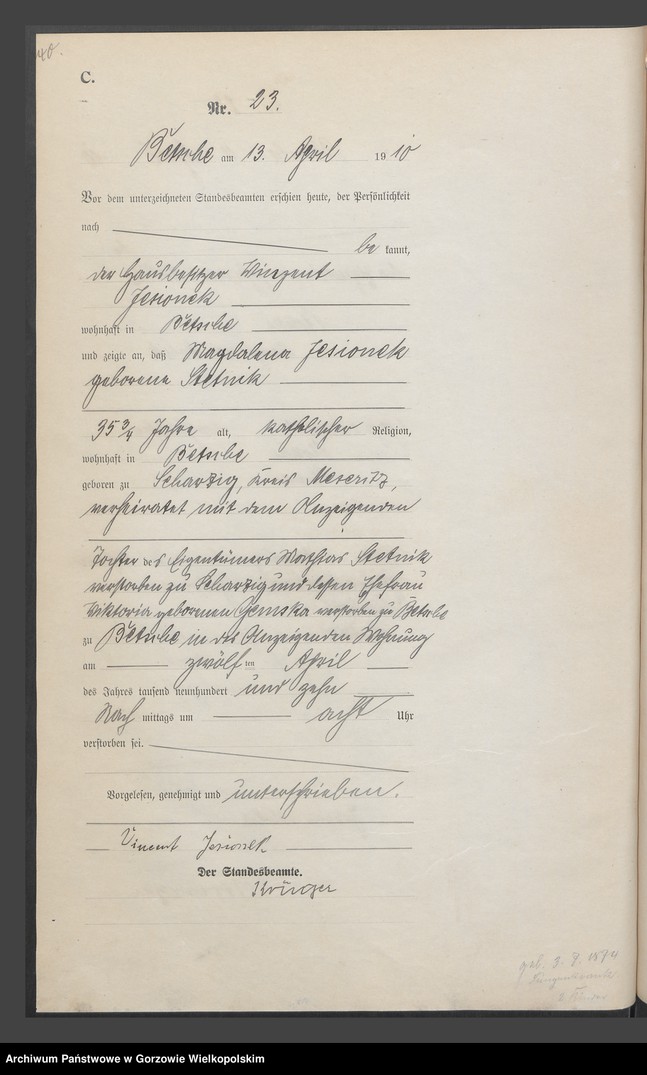 40.
C.
Nr. 23.
Betsche am 13. April 1910
Vor dem unterzeichneten Standesbeamten erschien heute, der Persönlichkeit
nach
be kannt,
der Hausbesitzer Vinzent
Jesionek
wohnhaft in Betsche
und zeigte an, daß Magdalena Jesionek
geborene Stetnik
35 3/4 Jahre alt, katholischer Religion,
wohnhaft in Betsche
geboren zu Scharzig, Kreis Meseritz,
verheiratet mit dem Anzeigenden
Tochter des Eigentümers Mathias Stetnik
verstorben zu Scharzig und dessen Ehefrau
Viktoria geborenen Gemska verstorben zu Betsche
zu Betsche in des Anzeigenden Wohnung
am zwölften April
des Jahres tausend neunhundert und zehn
Nach mittags um acht Uhr
verstorben sei.
Vorgelesen, genehmigt und unterschrieben.
Vincent Jesionek
Der Standesbeamte.
Krüger
geb. 3. 7. 1874
Archiwum Państwowe w Gorzowie Wielkopolskim